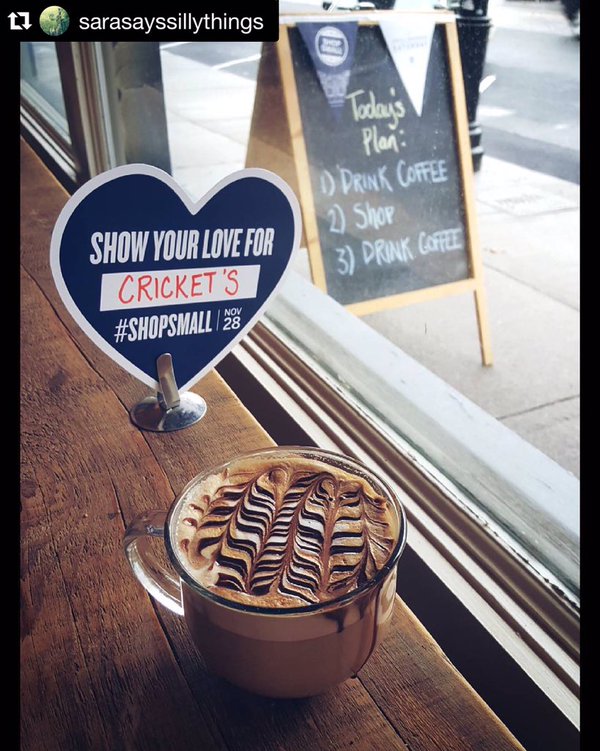 sarasayssillythings
SHOP
SMALL
Today's
Plan:
1) DRINK COFFEE
2) Shop
3) DRINK COFFEE
SHOW YOUR LOVE FOR
CRICKET'S
#SHOPSMALL | NOV
28